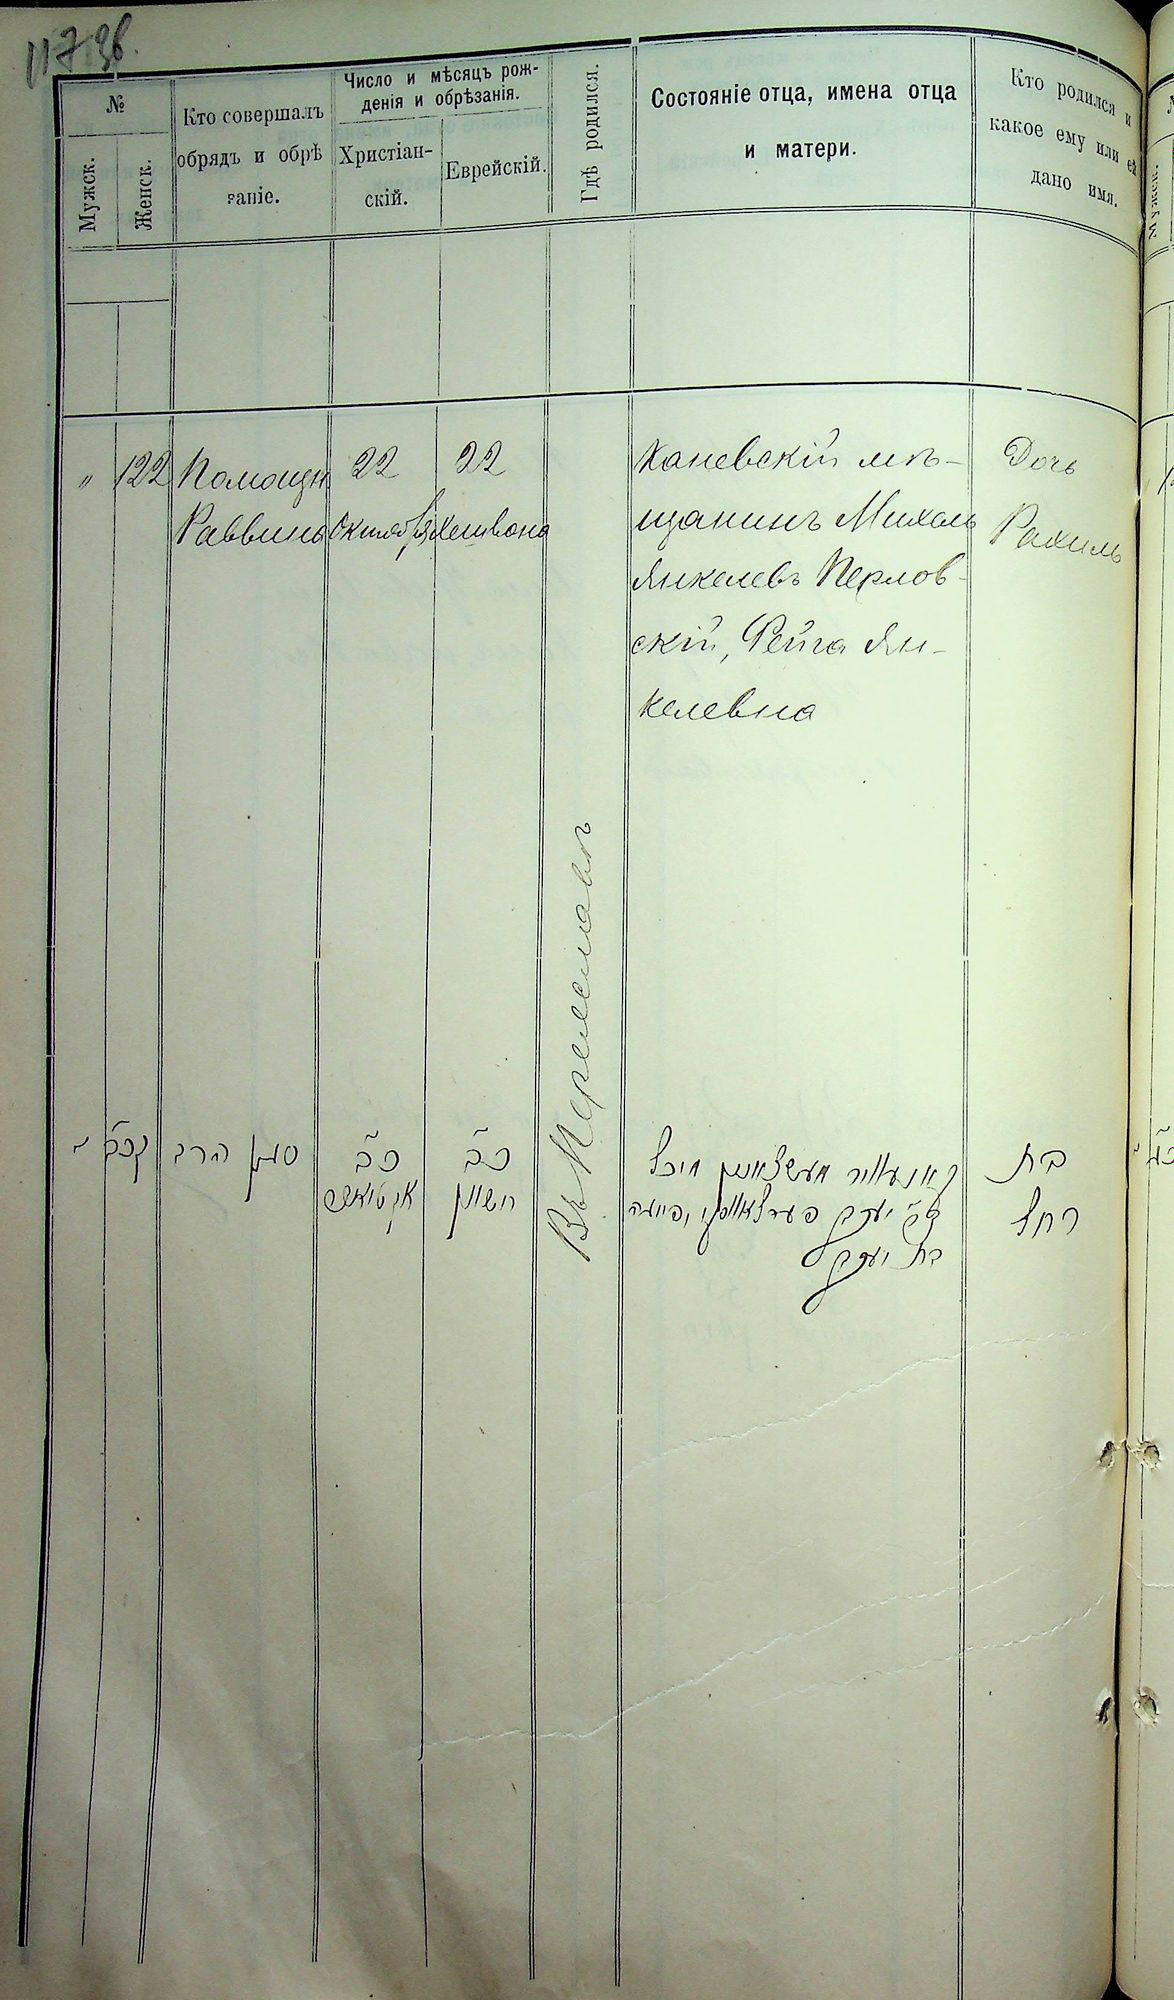 117 зв.
№
Мужск.
Женск.
Кто совершалъ
обрядъ и обрѣ
заніе.
Число и мѣсяцъ рож-
денія и обрѣзанія.
Христіан-
скій.
Еврейскій.
Гдѣ родился.
Состояніе отца, имена отца
и матери.
Кто родился и
какое ему или ей
дано имя.
Мужск.
" 122
Помощн
Раввина
22
Октября
22
Хешвона
Въ Переяславѣ
Каневскій мѣ-
щанинъ Михель
Янкелевъ Перлов-
скій, Фейга Ян-
келевна
Дочь
Рахиль
קכ״ב
סגן הרב
כ״ב
אקטיאבר
כ״ב
חשון
קאנעווער מעשצאנין מיכל
ב״ר יעקב פערלאווסקי, פייגה
בת יעקב
בת
רחל